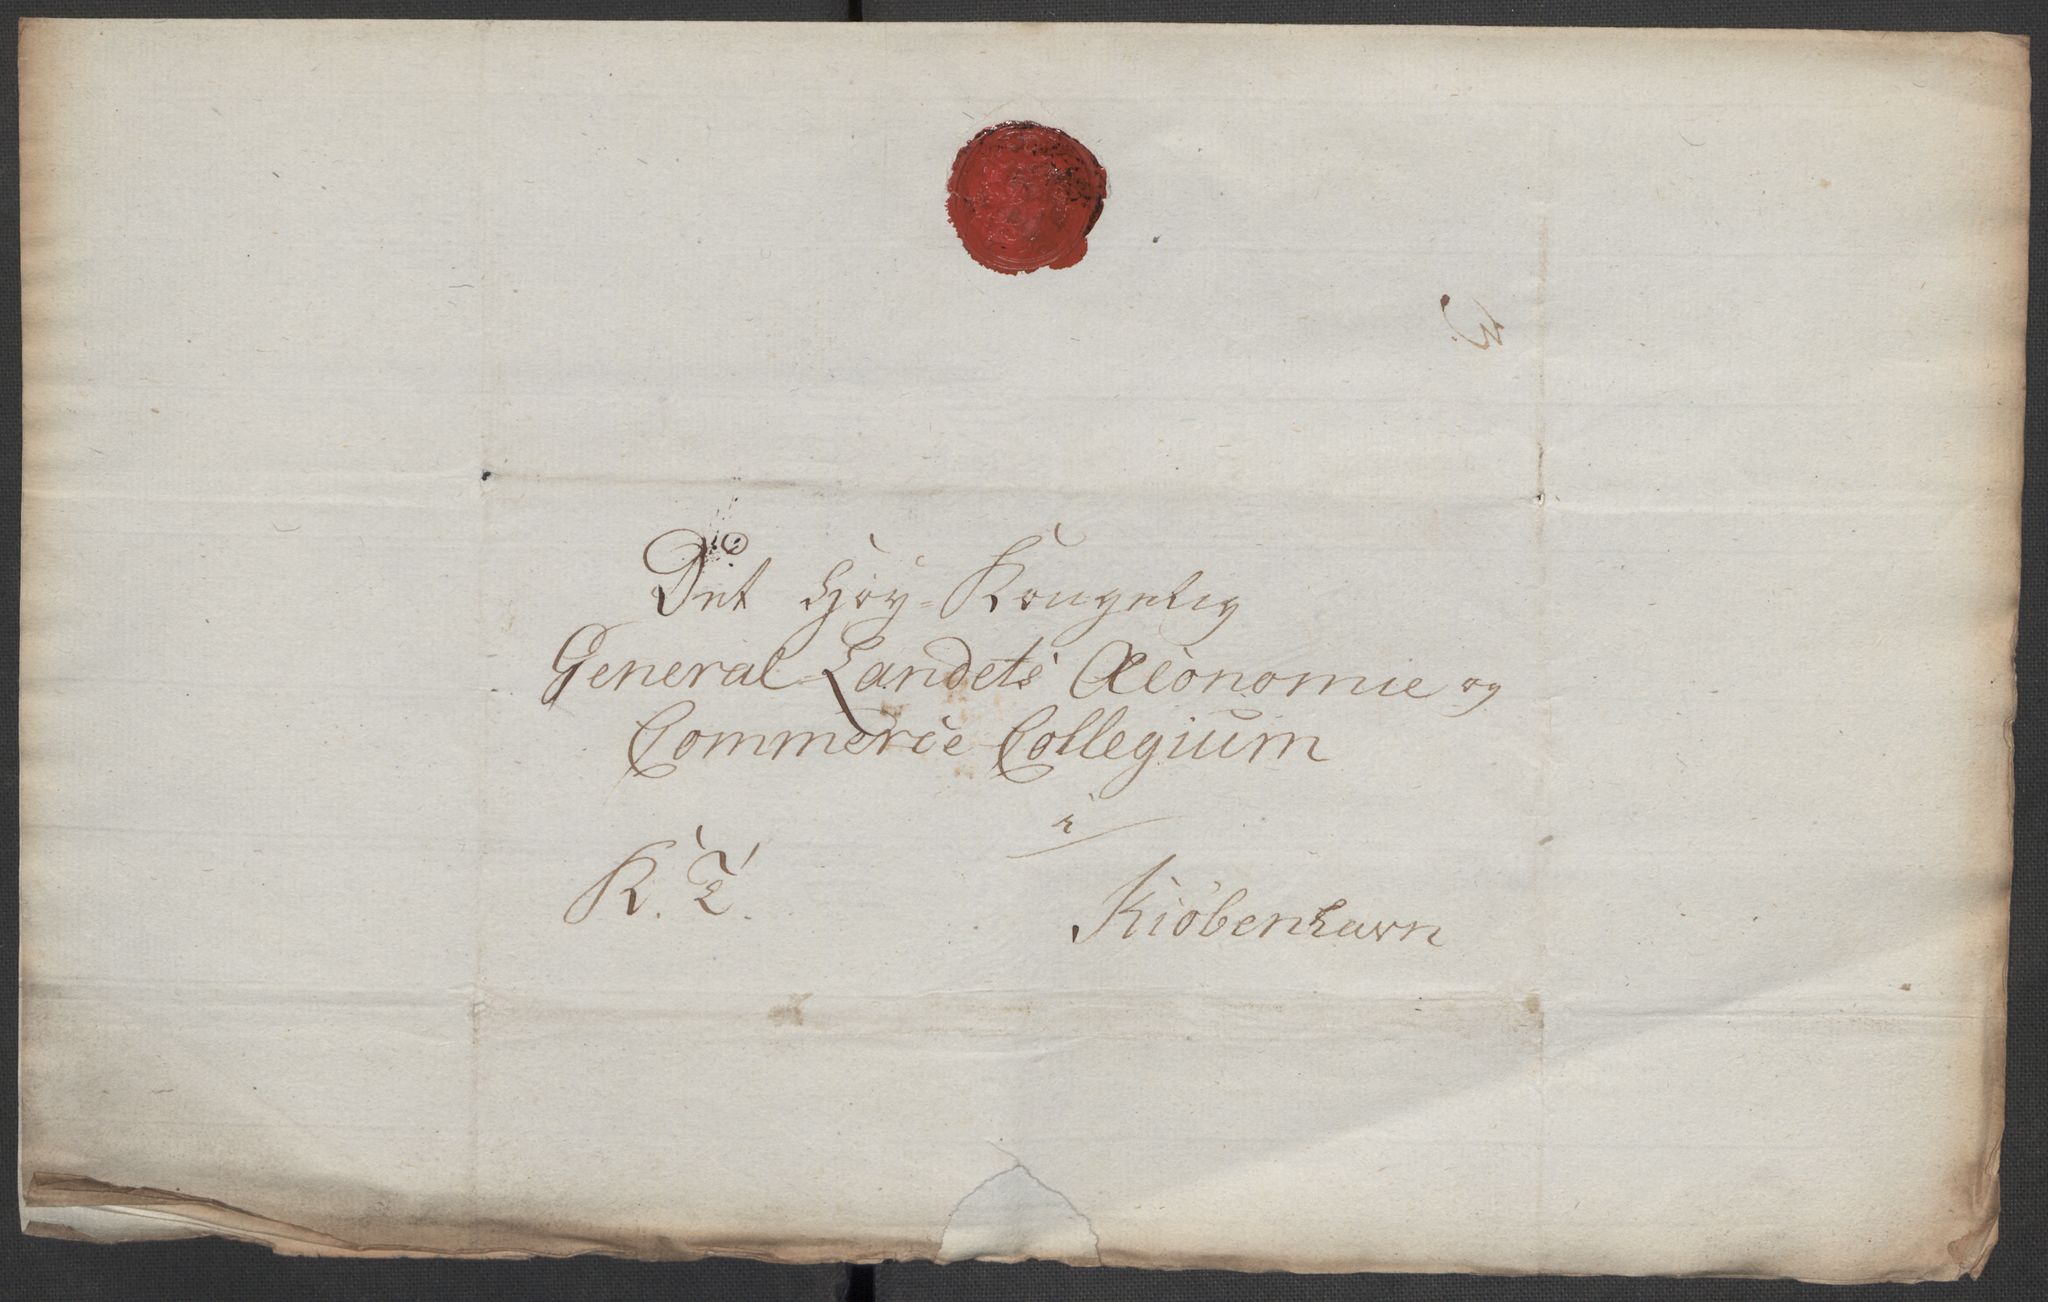 Det Høy-Kongelig
General-Landets Œconomie og
Commerce-Collegium
i
K. T.
Kiöbenhavn